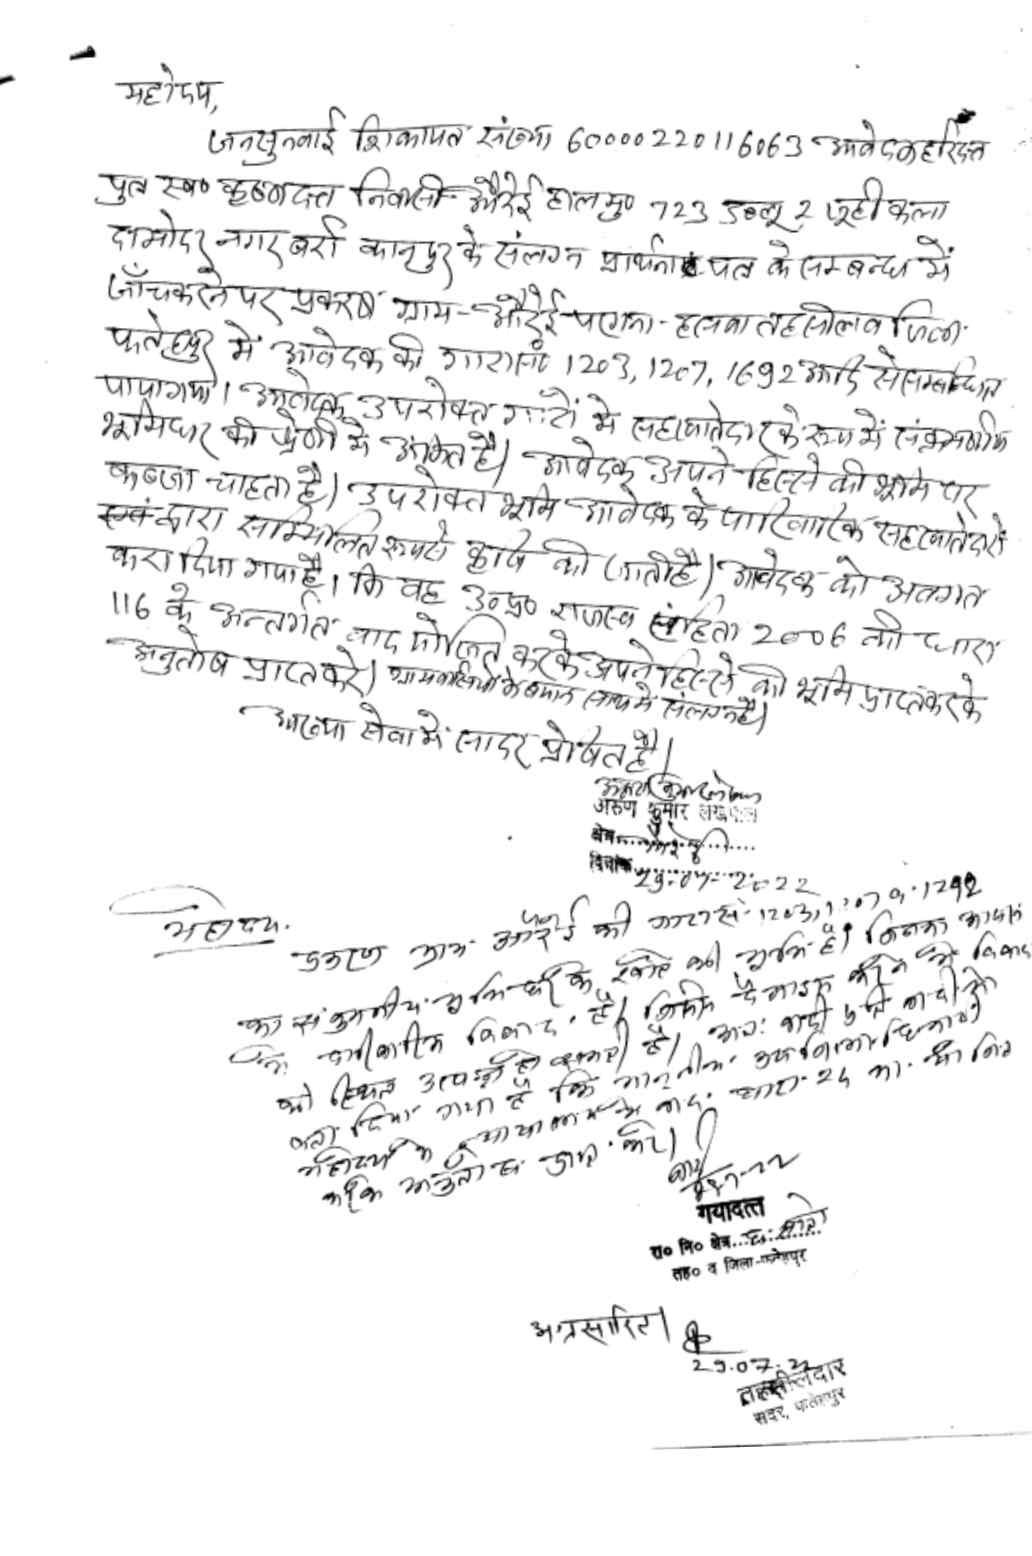 महोदय,
जनसुनवाई शिकायत संख्या 60000220116063 आवेदक हरिदत्त
पुत्र स्व० कृष्णदत्त निवासी औरेई हालमु० 723 डब्लू 2 जूही कला
दामोदर नगर बर्रा कानपुर के संलग्न प्रार्थना पत्र के सम्बन्ध में
जाँच करने पर प्रकरण ग्राम - औरेई परगना - हसवा तहसील व जिला
फतेहपुर में आवेदक की गाटा सं० 1203, 1207, 1692 आदि से सम्बन्धित
पाया गया। आवेदक उपरोक्त गाटों में सहखातेदार के रूप में संक्रमणीय
भूमिधर की श्रेणी में अंकित है। आवेदक अपने हिस्से की भूमि पर
कब्जा चाहता है। उपरोक्त भूमि आवेदक के पारिवारिक सहखातेदारो
द्वारा सम्मिलित रूप से कृषि की जाती है। आवेदक को अवगत
करा दिया गया है। कि वह उ०प्र० राजस्व संहिता 2006 की धारा
116 के अन्तर्गत वाद योजित करके अपने हिस्से की भूमि प्राप्त करके
अनुतोष प्राप्त करे। ग्रामवासियो के बयान साथ में संलग्न है।
आख्या सेवा में सादर प्रेषित है।
अरुण कुमार लेखपाल
क्षेत्र....औरेई....
दिनांक 29.07.2022
महोदय.
प्रकरण ग्राम औरेई की गाटा सं. 1203, 1207 व 1292
का संक्रमणीय भूमिधरी के खाते की भूमि है। जिसका
पारिवारिक विवाद है। जिसमें पैमाइश करने में विवाद
की स्थिति उत्पन्न हो सकती है। अतः वादी प्रति वादी को
बता दिया गया है कि माननीय उपजिलाधिकारी
महोदय के न्यायालय में वाद धारा 24 का
करके अनुतोष प्राप्त करे।
गयादत्त
रा० नि० क्षेत्र....
तह० व जिला-फतेहपुर
अग्रसारित।
29.07.22
तहसीलदार
सदर, फतेहपुर